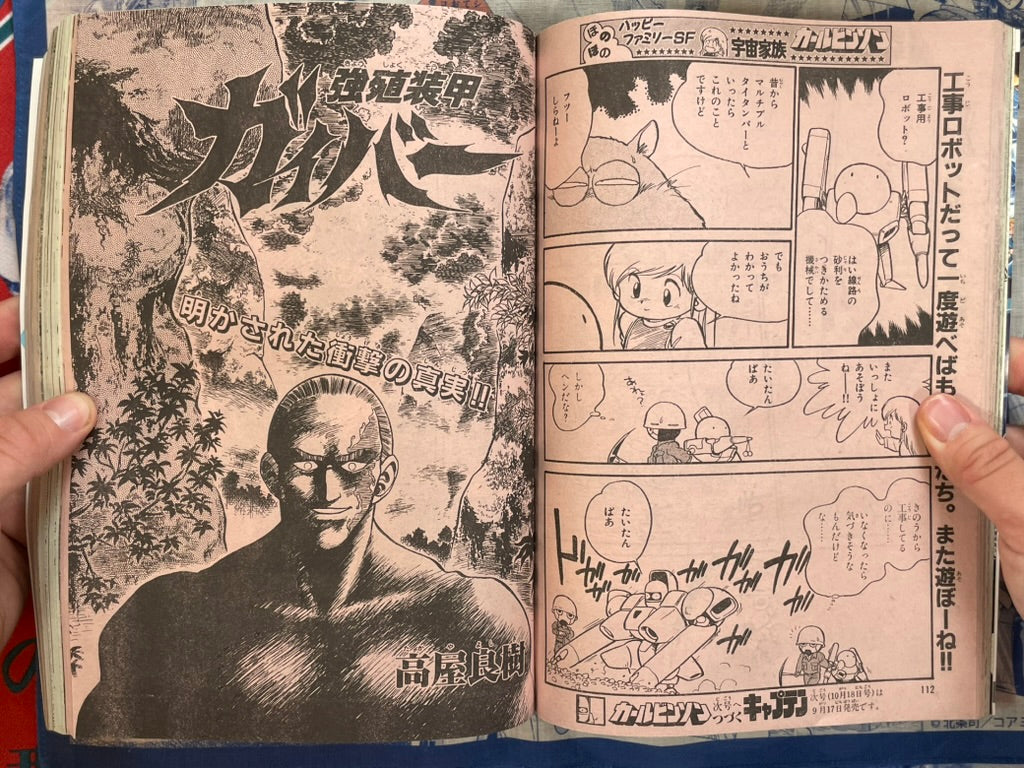 ほのぼの
ハッピー
ファミリーSF
宇宙家族
カールビンソン
工事ロボットだって一度遊べばも
だち。また遊ぼーね!!
工事用
ロボット?
はい線路の
砂利を
つきかためる
機械でして……
昔から
マルチプル
タイタンパーと
いったら
これのこと
ですけど
フツー
しらねーよ
でも
おうちが
わかって
よかったね
また
いっしょに
あそぼう
ねー!!
たいたん
ばあ
あれ?
しかし
ヘンだな?
きのうから
工事してる
のに……
いなくなったら
気づきそうな
もんだけど
な……
たいたん
ばあ
カールビンソン
次号へ
つづく
キャプテン
次号(10月18日号)は
9月17日発売です。
112
強殖装甲
ガイバー
明かされた衝撃の真実!!
高屋良樹
©北条司/コアミ